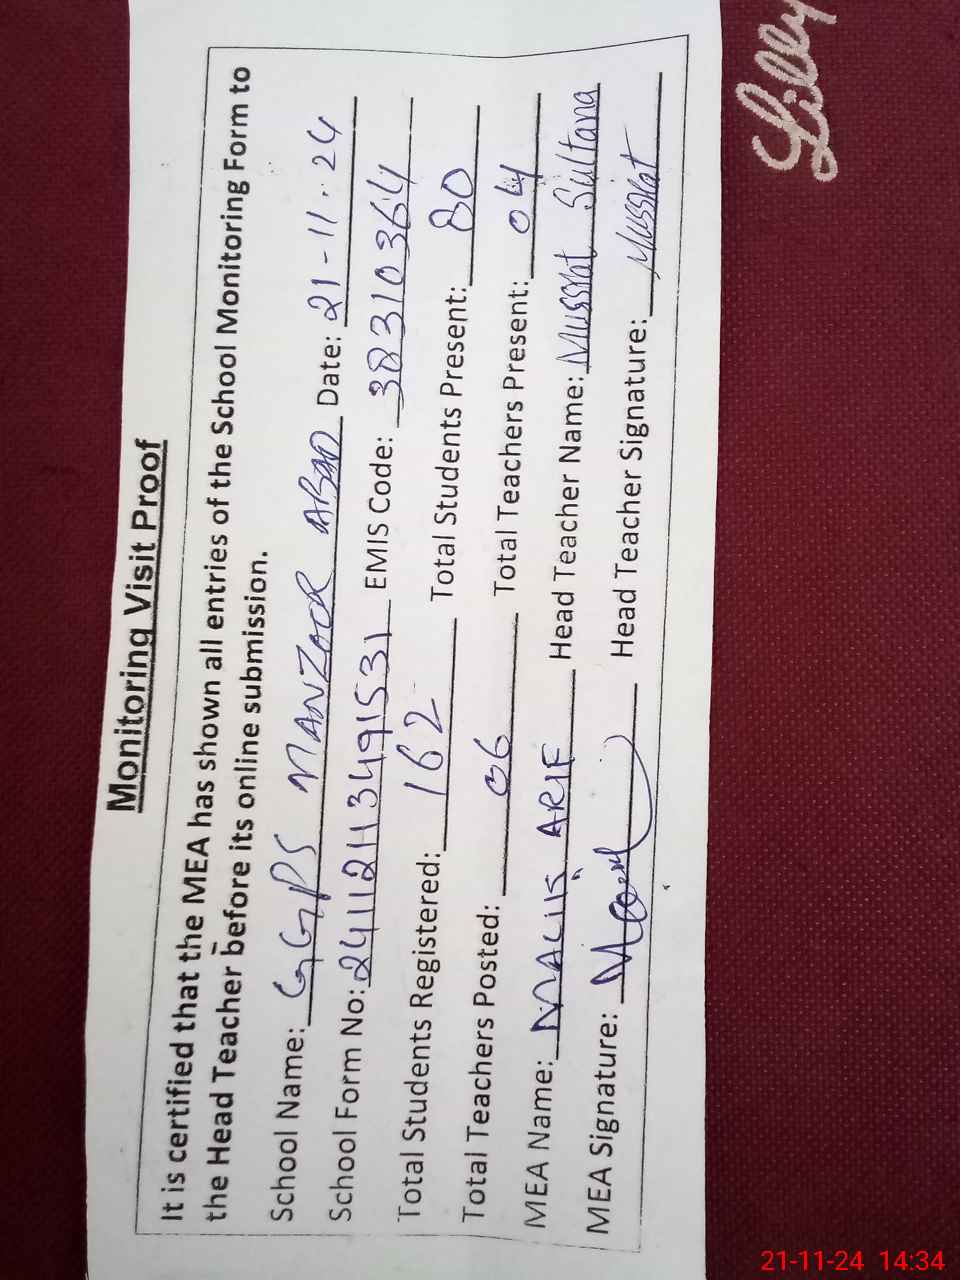 Monitoring Visit Proof
It is certified that the MEA has shown all entries of the School Monitoring Form to
the Head Teacher before its online submission.
School Name: GGPS MANZOOR ABAD Date: 21-11-24
School Form No: 24112113491531 EMIS Code: 38310364
Total Students Registered: 162 Total Students Present: 80
Total Teachers Posted: 06 Total Teachers Present: 04
MEA Name: ARIF Head Teacher Name: Mussrat Sultana
MEA Signature: Head Teacher Signature: Mussrat
Lilly
21-11-24 14:34